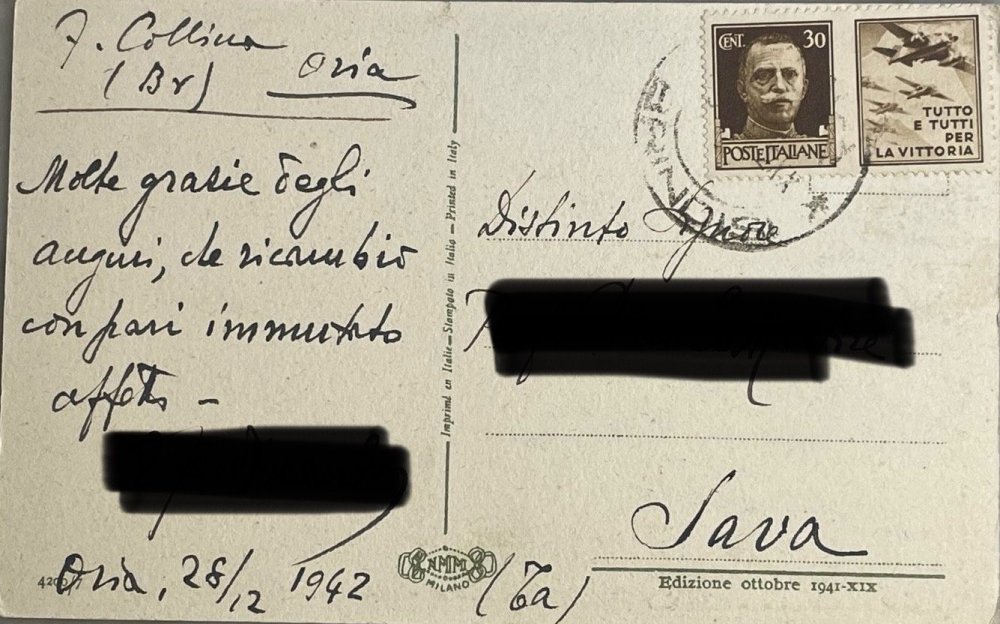 F. Collina
(Br) Oria
Molte grazie degli
auguri, che ricambio
con pari immutato
affetto –
Oria, 28/12 1942
4200
Imprimé en Italie — Stampato in Italia — Printed in Italy
NMM
MILANO
CENT. 30
POSTE ITALIANE
TUTTO
E TUTTI
PER
LA VITTORIA
BRINDISI
Distinto Signore
Sava
(Ta)
Edizione ottobre 1941-XIX